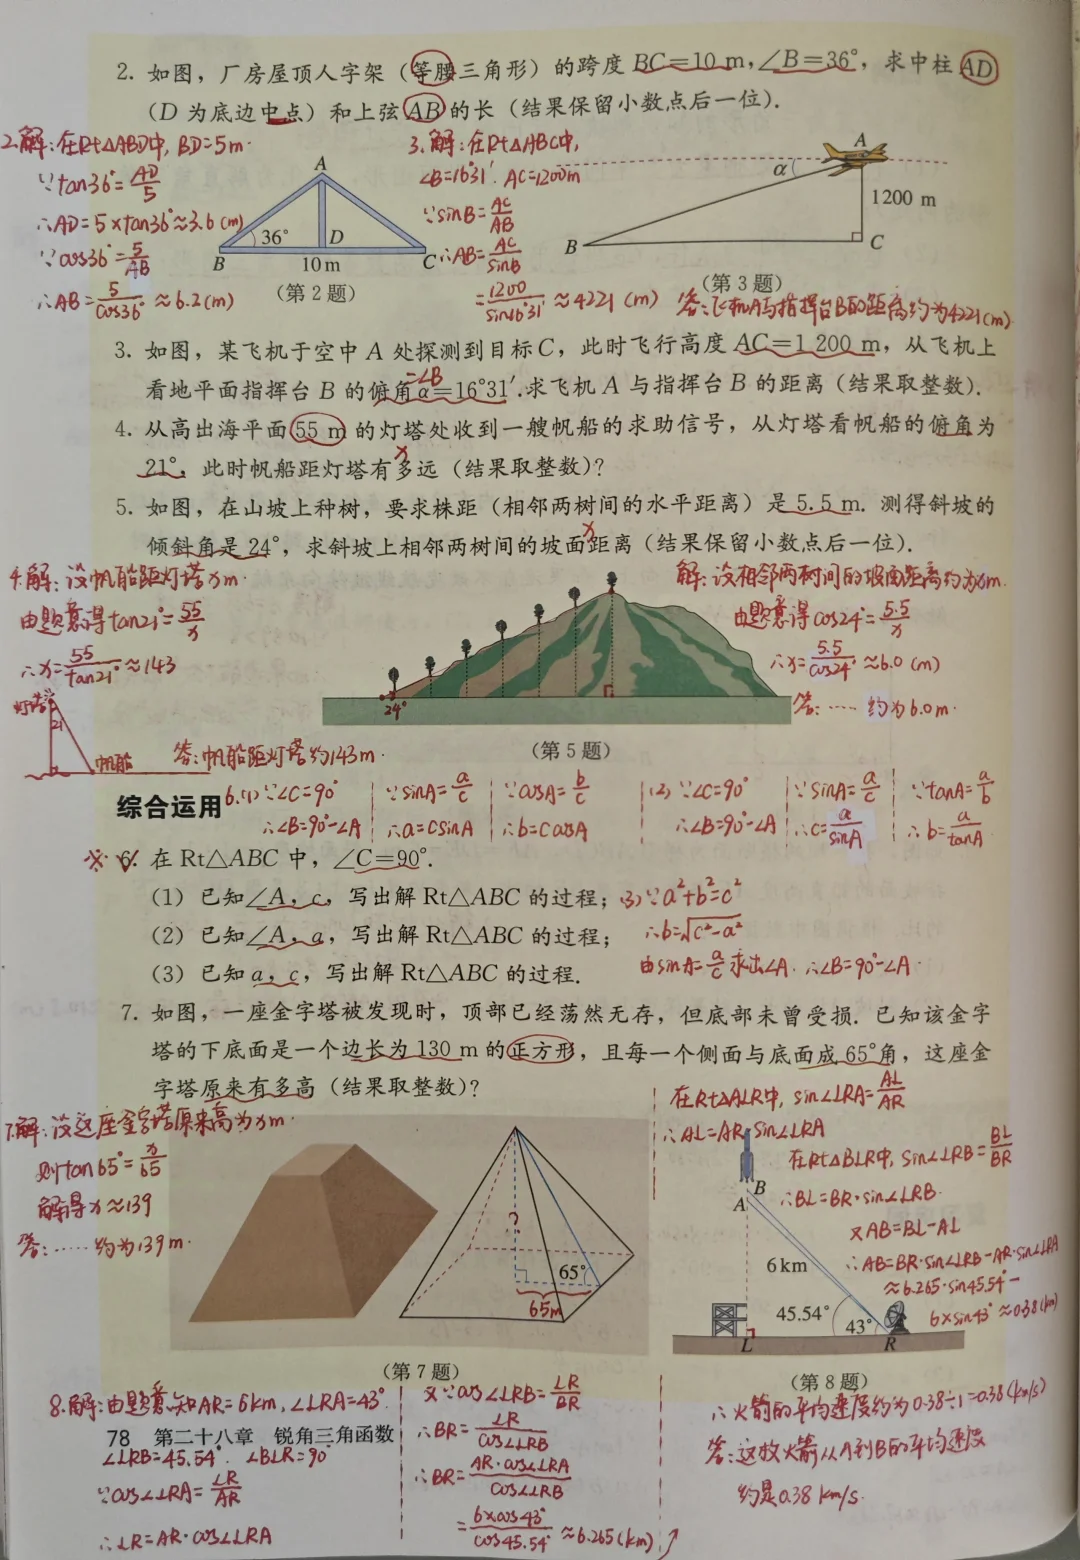 2. 如图，厂房屋顶人字架（等腰三角形）的跨度 BC=10 m，∠B=36°，求中柱 AD
（D 为底边中点）和上弦 AB 的长（结果保留小数点后一位）.
2.解:在Rt△ABD中, BD=5m.
∵tan36°=AD/5
∴AD=5×tan36°≈3.6(m)
∵cos36°=5/AB
∴AB=5/cos36°≈6.2(m)
A
36°
D
B
10 m
C
（第 2 题）
3.解:在Rt△ABC中,
∠B=16°31′. AC=1200m
∵sinB=AC/AB
∴AB=AC/sinB
=1200/sin16°31′≈4221(m)
答:飞机A与指挥台B的距离约为4221(m)
A
α
1200 m
B
C
（第 3 题）
3. 如图，某飞机于空中 A 处探测到目标 C，此时飞行高度 AC=1 200 m，从飞机上
=∠B
看地平面指挥台 B 的俯角 α=16°31′.求飞机 A 与指挥台 B 的距离（结果取整数）.
4. 从高出海平面 55 m 的灯塔处收到一艘帆船的求助信号，从灯塔看帆船的俯角为
x
21°，此时帆船距灯塔有多远（结果取整数）？
5. 如图，在山坡上种树，要求株距（相邻两树间的水平距离）是 5.5 m. 测得斜坡的
x
倾斜角是 24°，求斜坡上相邻两树间的坡面距离（结果保留小数点后一位）.
4.解:设帆船距灯塔xm.
由题意得tan21°=55/x
∴x=55/tan21°≈143
灯塔
21°
帆船
答:帆船距灯塔约143m.
24°
（第 5 题）
解:设相邻两树间的坡面距离约为xm.
由题意得cos24°=5.5/x
∴x=5.5/cos24°≈6.0(m)
答:……约为6.0m.
综合运用
6.(1)∵∠C=90°
∴∠B=90°-∠A
∵sinA=a/c
∴a=csinA
∵cosA=b/c
∴b=ccosA
(2)∵∠C=90°
∴∠B=90°-∠A
∵sinA=a/c
∴c=a/sinA
∵tanA=a/b
∴b=a/tanA
6. 在 Rt△ABC 中，∠C=90°.
（1）已知∠A，c，写出解 Rt△ABC 的过程；
（2）已知∠A，a，写出解 Rt△ABC 的过程；
（3）已知 a，c，写出解 Rt△ABC 的过程.
(3)∵a²+b²=c²
∴b=√(c²-a²)
由sinA=a/c求出∠A. ∴∠B=90°-∠A.
7. 如图，一座金字塔被发现时，顶部已经荡然无存，但底部未曾受损. 已知该金字
塔的下底面是一个边长为 130 m 的正方形，且每一个侧面与底面成 65°角，这座金
字塔原来有多高（结果取整数）？
7.解:设这座金字塔原来高为xm.
则tan65°=x/65
解得x≈139
答:……约为139m.
?
65°
65m
（第 7 题）
在Rt△ALR中, sin∠LRA=AL/AR
∴AL=AR·sin∠LRA
在Rt△BLR中, sin∠LRB=BL/BR
∴BL=BR·sin∠LRB.
又AB=BL-AL
∴AB=BR·sin∠LRB-AR·sin∠LRA
≈6.265·sin45.54°-
6×sin43°≈0.38(km)
B
A
6 km
45.54°
43°
L
R
（第 8 题）
8.解:由题意知AR=6km,∠LRA=43°
78 第二十八章 锐角三角函数
∠LRB=45.54°. ∠BLR=90°
∵cos∠LRA=LR/AR
∴LR=AR·cos∠LRA
又∵cos∠LRB=LR/BR
∴BR=LR/cos∠LRB
∴BR=AR·cos∠LRA/cos∠LRB
=6×cos43°/cos45.54°≈6.265(km)
∴火箭的平均速度约为0.38÷1=0.38(km/s)
答:这枚火箭从A到B的平均速度
约是0.38 km/s.